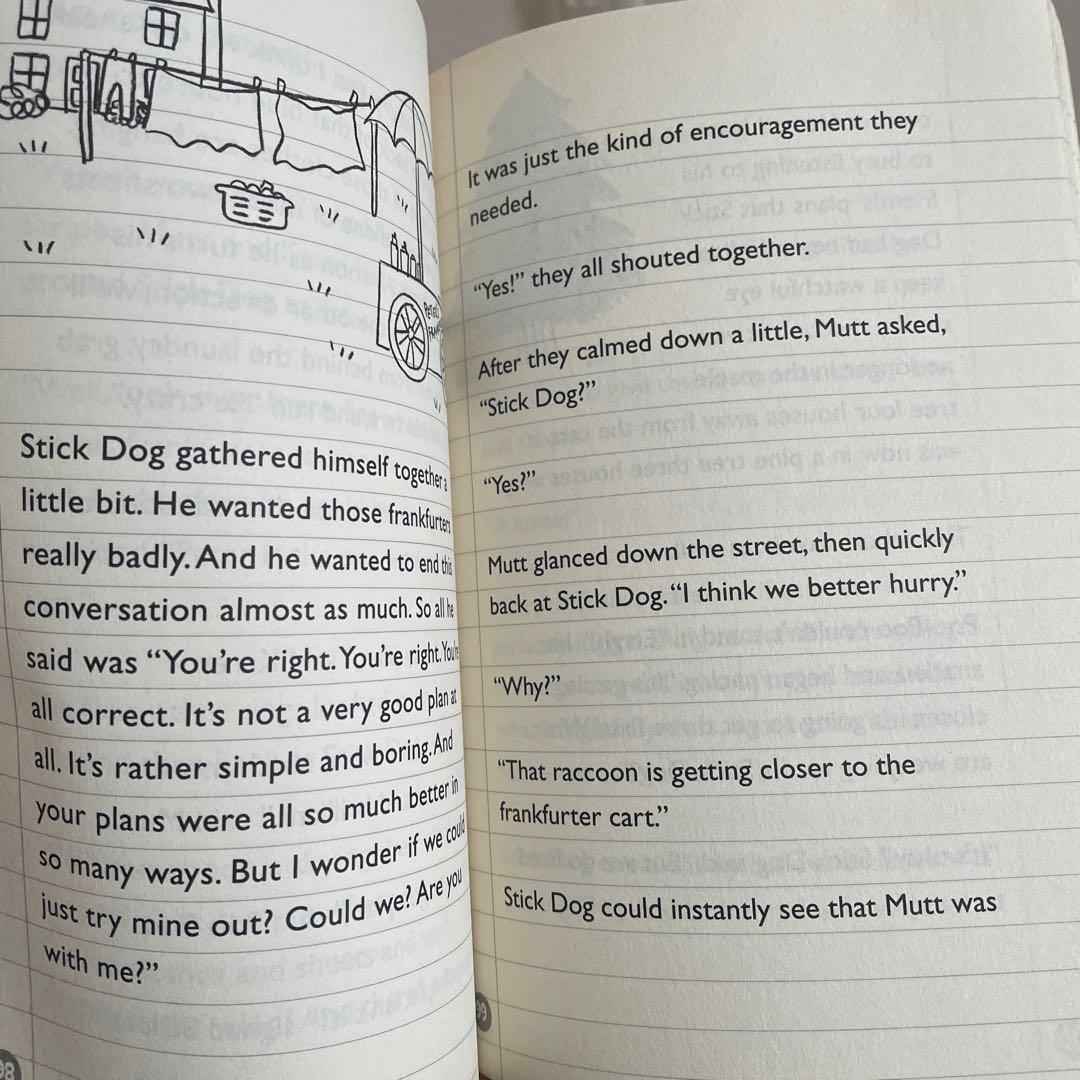 Stick Dog gathered himself together a
little bit. He wanted those frankfurters
really badly. And he wanted to end this
conversation almost as much. So all he
said was “You’re right. You’re right. You’re
all correct. It’s not a very good plan at
all. It’s rather simple and boring. And
your plans were all so much better in
so many ways. But I wonder if we could
just try mine out? Could we? Are you
with me?”
98
It was just the kind of encouragement they
needed.
“Yes!” they all shouted together.
After they calmed down a little, Mutt asked,
“Stick Dog?”
“Yes?”
Mutt glanced down the street, then quickly
back at Stick Dog. “I think we better hurry.”
“Why?”
“That raccoon is getting closer to the
frankfurter cart.”
Stick Dog could instantly see that Mutt was
99